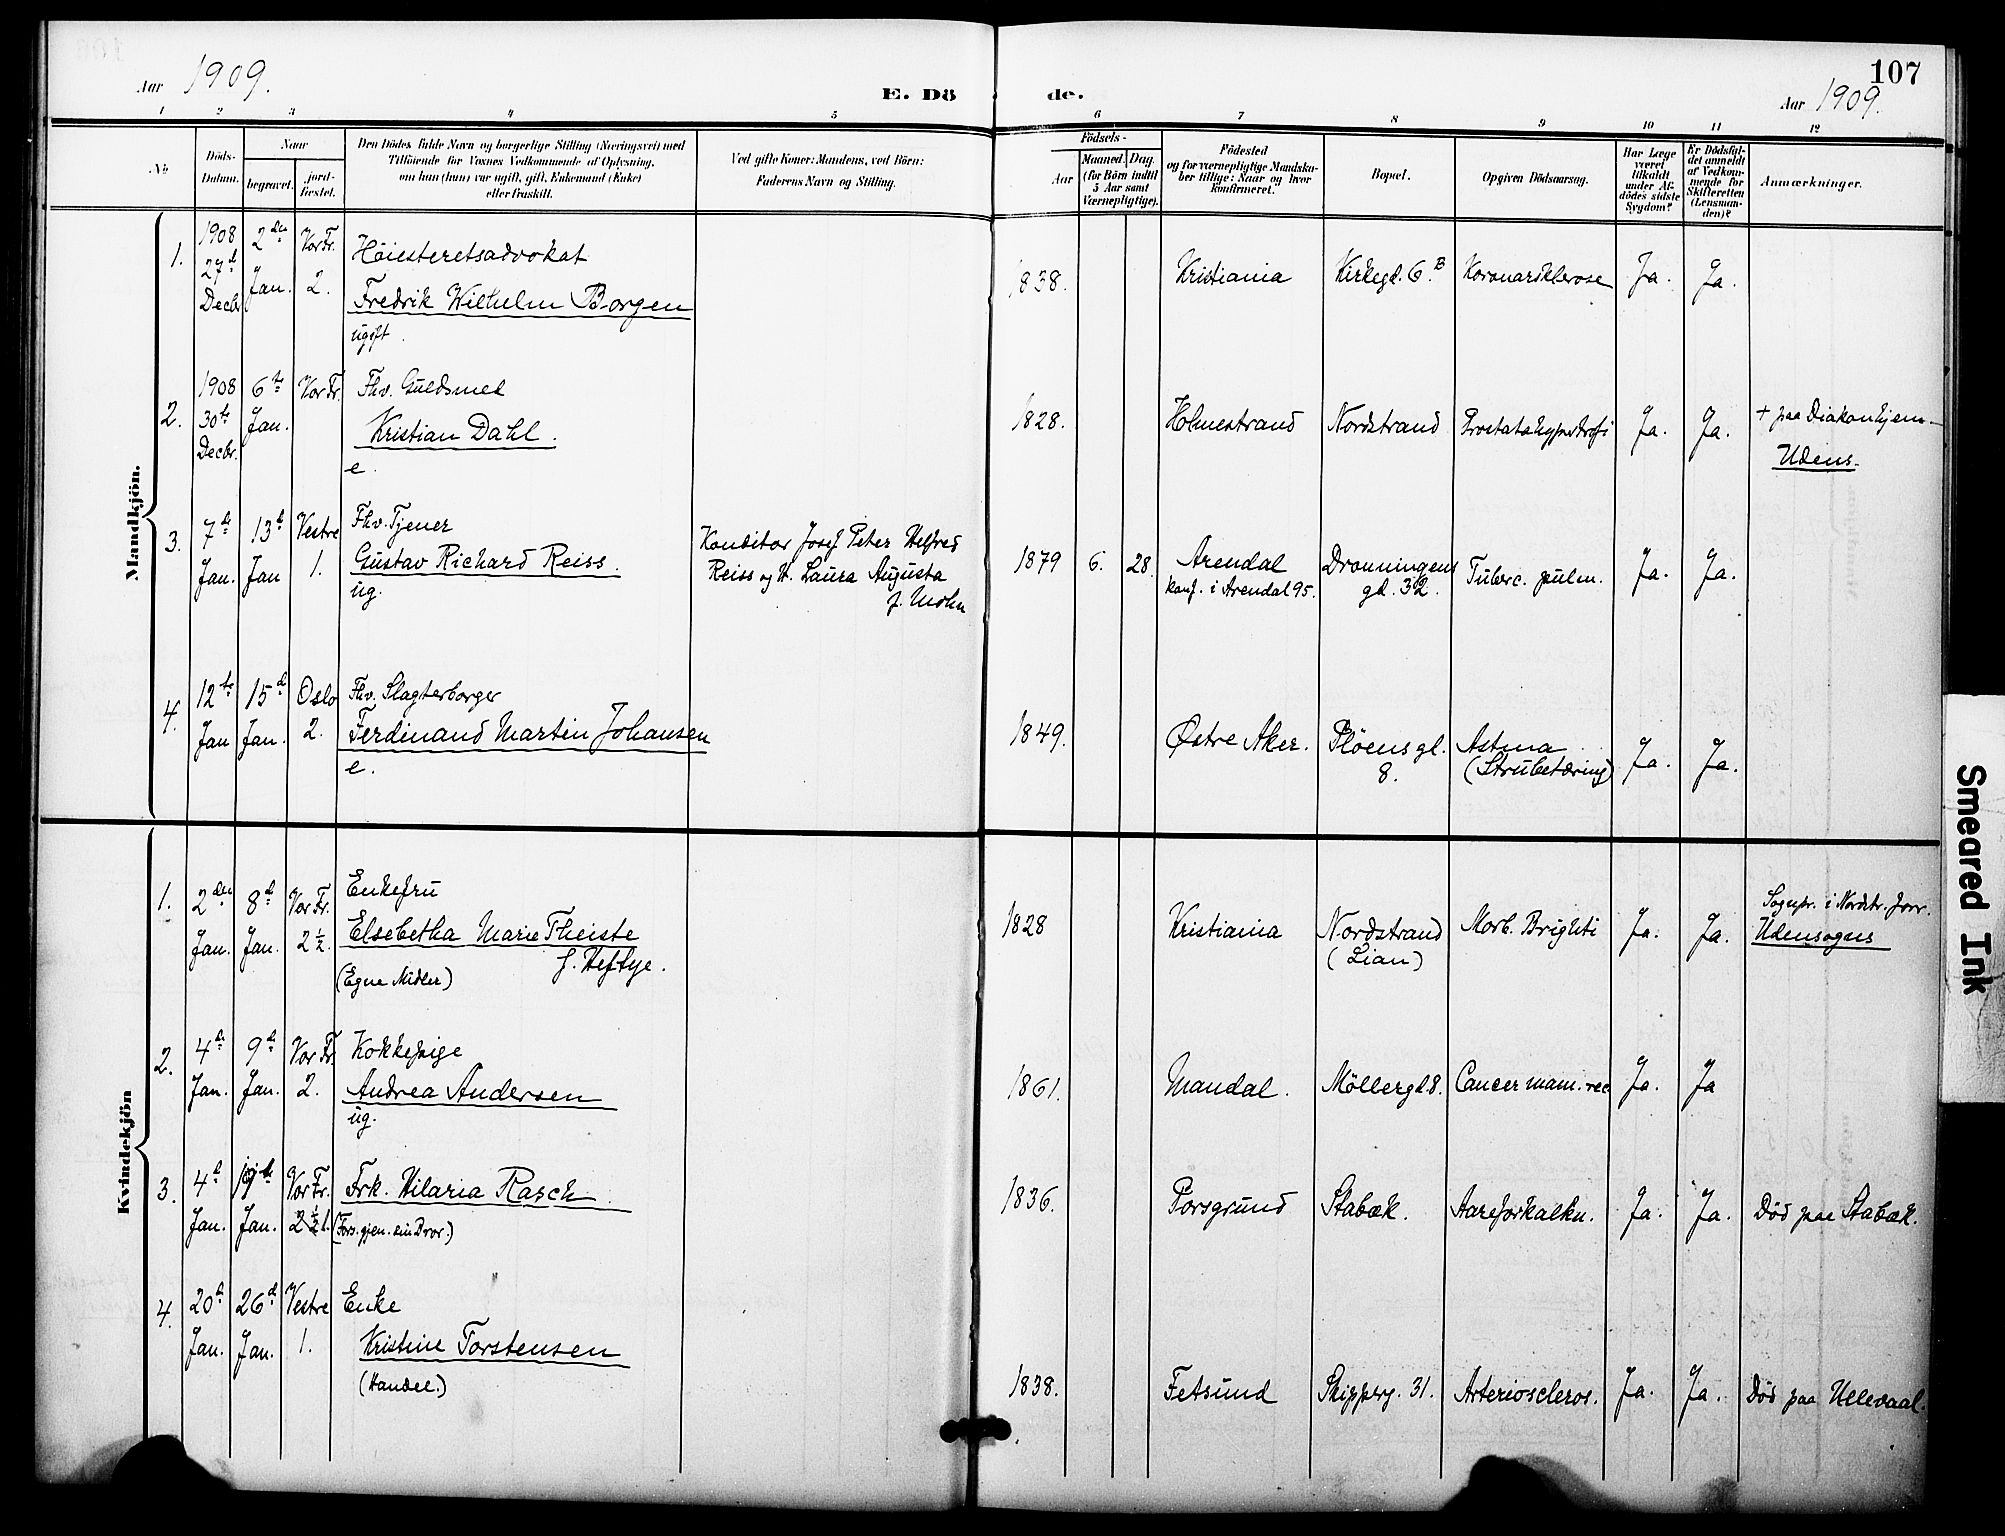 107
Aar 1909.
E. Dö
de.
Aar 1909.
1 2 3 4 5 6 7 8 9 10 11 12
No
Döds-
Datum.
Naar
begravet.
jord-
fæstet.
Den Dödes fulde Navn og borgerlige Stilling (Næringsvei) med
Tilföiende for Voxnes Vedkommende af Oplysning,
om han (hun) var ugift, gift, Enkemand (Enke)
eller fraskilt.
Ved gifte Koner: Mandens, ved Börn:
Faderens Navn og Stilling.
Födsels-
Aar
Maaned. Dag.
(for Börn indtil
5 Aar samt
Værnepligtige).
Födested
og for værnepligtige Mandska-
ber tillige: Naar og hvor
konfirmeret.
Bopæl.
Opgiven Dödsaarsag.
Har Læge
været
tilkaldt
under Af-
dödes sidste
Sygdom?
Er Dödsfal-
det anmeldt
af Vedkom-
mende for
Skifteretten
(Lensman-
den)?
Anmærkninger.
Mandkjön.
1.
1908
27d
Decbr
2den
Jan.
Vor Fr.
2.
Höiesteretsadvokat
Fredrik Wilhelm Borgen
ugift.
1838.
Kristiania
Kirkegd. 6 B
Koronarsklerose
Ja.
Ja.
2.
1908
30te
Decbr.
6te
Jan.
Vor Fr.
Fhv. Guldsmed
Kristian Dahl.
e.
1828.
Holmestrand
Nordstrand
Prostatahypertrofi
Ja.
Ja.
+ paa Diakonhjem-
Udens.
3.
7de
Jan.
13d
Jan
Vestre
1.
Fhv. Tjener
Gustav Richard Reiss.
ug.
Konditor Josef Peter Helfred
Reiss og H. Laura Augusta
f. Mohn
1879
6.
28.
Arendal
konf. i Arendal 95.
Dronningens
gd. 32.
Tuberc. pulm.
Ja.
Ja.
4.
12te
Jan
15d
Jan.
Oslo
2.
Fhv. Slagterborger
Ferdinand Martin Johansen
e.
1849.
Østre Aker.
Plöens gd.
8.
Astma
(Strubetæring)
Ja.
Ja.
Kvindekjön
1.
2den
Jan.
8d
Jan.
Vor Fr.
2 1/2
Enkefru
Elsebetha Marie Theiste
f. Heftye.
(Egne Midler)
1828
Kristiania
Nordstrand
(Lian)
Morb. Brighti
Ja.
Ja.
Sognpr. i Nordstr. forr.
Udensogns
2.
4de
Jan.
9de
Jan.
Vor Fr.
2.
Kokkepige
Andrea Andersen
ug.
1861.
Mandal.
Möllergd. 8.
Cancer mam. rec
Ja.
Ja
3.
4d
Jan.
Jan.
Vor Fr.
2 1/2 1.
Frk. Hilaria Rasch
(Fors. gjen. sin Bror.)
1836.
Porsgrund
Stabæk.
Aareforkalkn.
Ja.
Ja.
Död paa Stabæk.
4.
20d
Jan.
26d
Jan.
Vestre
1.
Enke
Kristine Torstensen
(Handel.)
1838.
Fetsund
Skipperg. 31.
Arterioscleros.
Ja.
Ja.
Död paa Ullevaal.
Smeared Ink